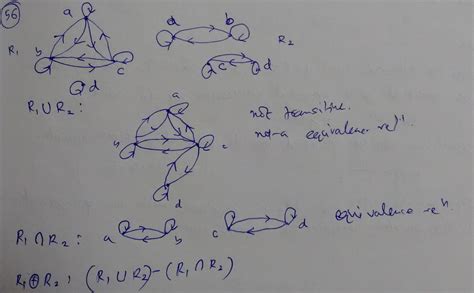 56
a
R₁ b c
d
d b R₂
c d
R₁ ∪ R₂ :
a
b c
d
not transitive.
not a equivalence relⁿ
R₁ ∩ R₂ : a b c d equivalence reⁿ
R₁ ⊕ R₂ : (R₁ ∪ R₂) - (R₁ ∩ R₂)